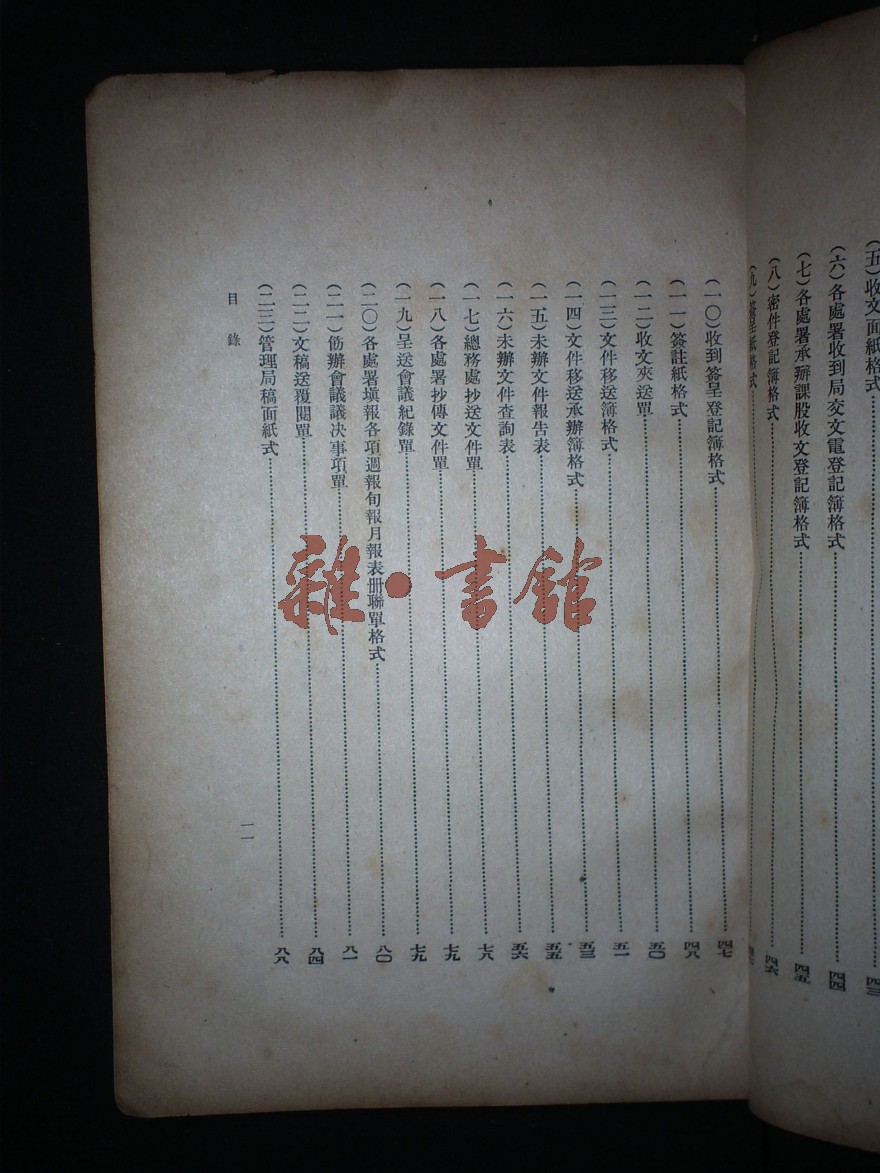 （五）收文面紙格式……四三
（六）各處署收到局交文電登記簿格式……四四
（七）各處署承辦課股收文登記簿格式……四五
（八）密件登記簿格式……四六
（九）簽呈紙格式……
（一〇）收到簽呈登記簿格式……四七
（一一）簽註紙格式……四八
（一二）收文夾送單……五〇
（一三）文件移送簿格式……五一
（一四）文件移送承辦簿格式……五三
（一五）未辦文件報告表……五五
（一六）未辦文件查詢表……五六
（一七）總務處抄送文件單……七六
（一八）各處署抄傳文件單……七九
（一九）呈送會議紀錄單……七九
（二〇）各處署填報各項週報旬報月報表冊聯單格式……八〇
（二一）飭辦會議議决事項單……八一
（二二）文稿送覆閱單……八四
（二三）管理局稿面紙式……八八
目錄
二
雜·書館